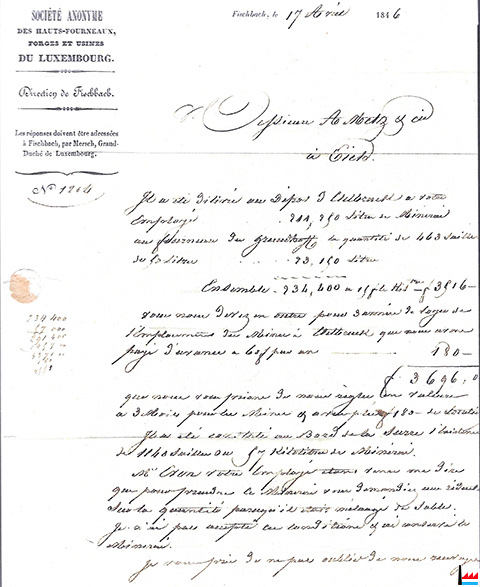 SOCIÉTÉ ANONYME
DES HAUTS-FOURNEAUX,
FORGES ET USINES
DU LUXEMBOURG.
Direction de Fischbach.
Les réponses doivent être adressées
à Fischbach, par Mersch, Grand-
Duché de Luxembourg.
Nº 1214
Fischbach, le 17 Avril 1846
Messieurs A Metz & cie
à Eich.
Il a été délivré au Dépôt d'Ettelbruck à votre
Employé 211,250 litres de Minerai
au fourneau du grundhoff la quantité de 463
de 50 litres 23,150 litres
Ensemble 234,400 à 15 f 3516 -
vous nous devez en outre pour d'année de loyer de
l'Emplacement des Mines à Ettelbruck que nous avons
payé d'avance à 60 f par an 180 -
f 3696,0
que nous vous prions de nous régler en valeurs
à 3 Mois pour les Mines et 180 -
Il a été constaté au Bord de la Sure l'Existence
de 1140 ou 57 Kilolitres de Minerai.
Mr votre Employé venu me dire
que pour prendre le Minerai vous demandiez une
sur la quantité parcequ'il était mélangé de sables.
Je n'ai pas accepté ces conditions & ai conservé le
Minerai.
Je vous prie de ne pas oublier de nous
234 400
57 000
291 400